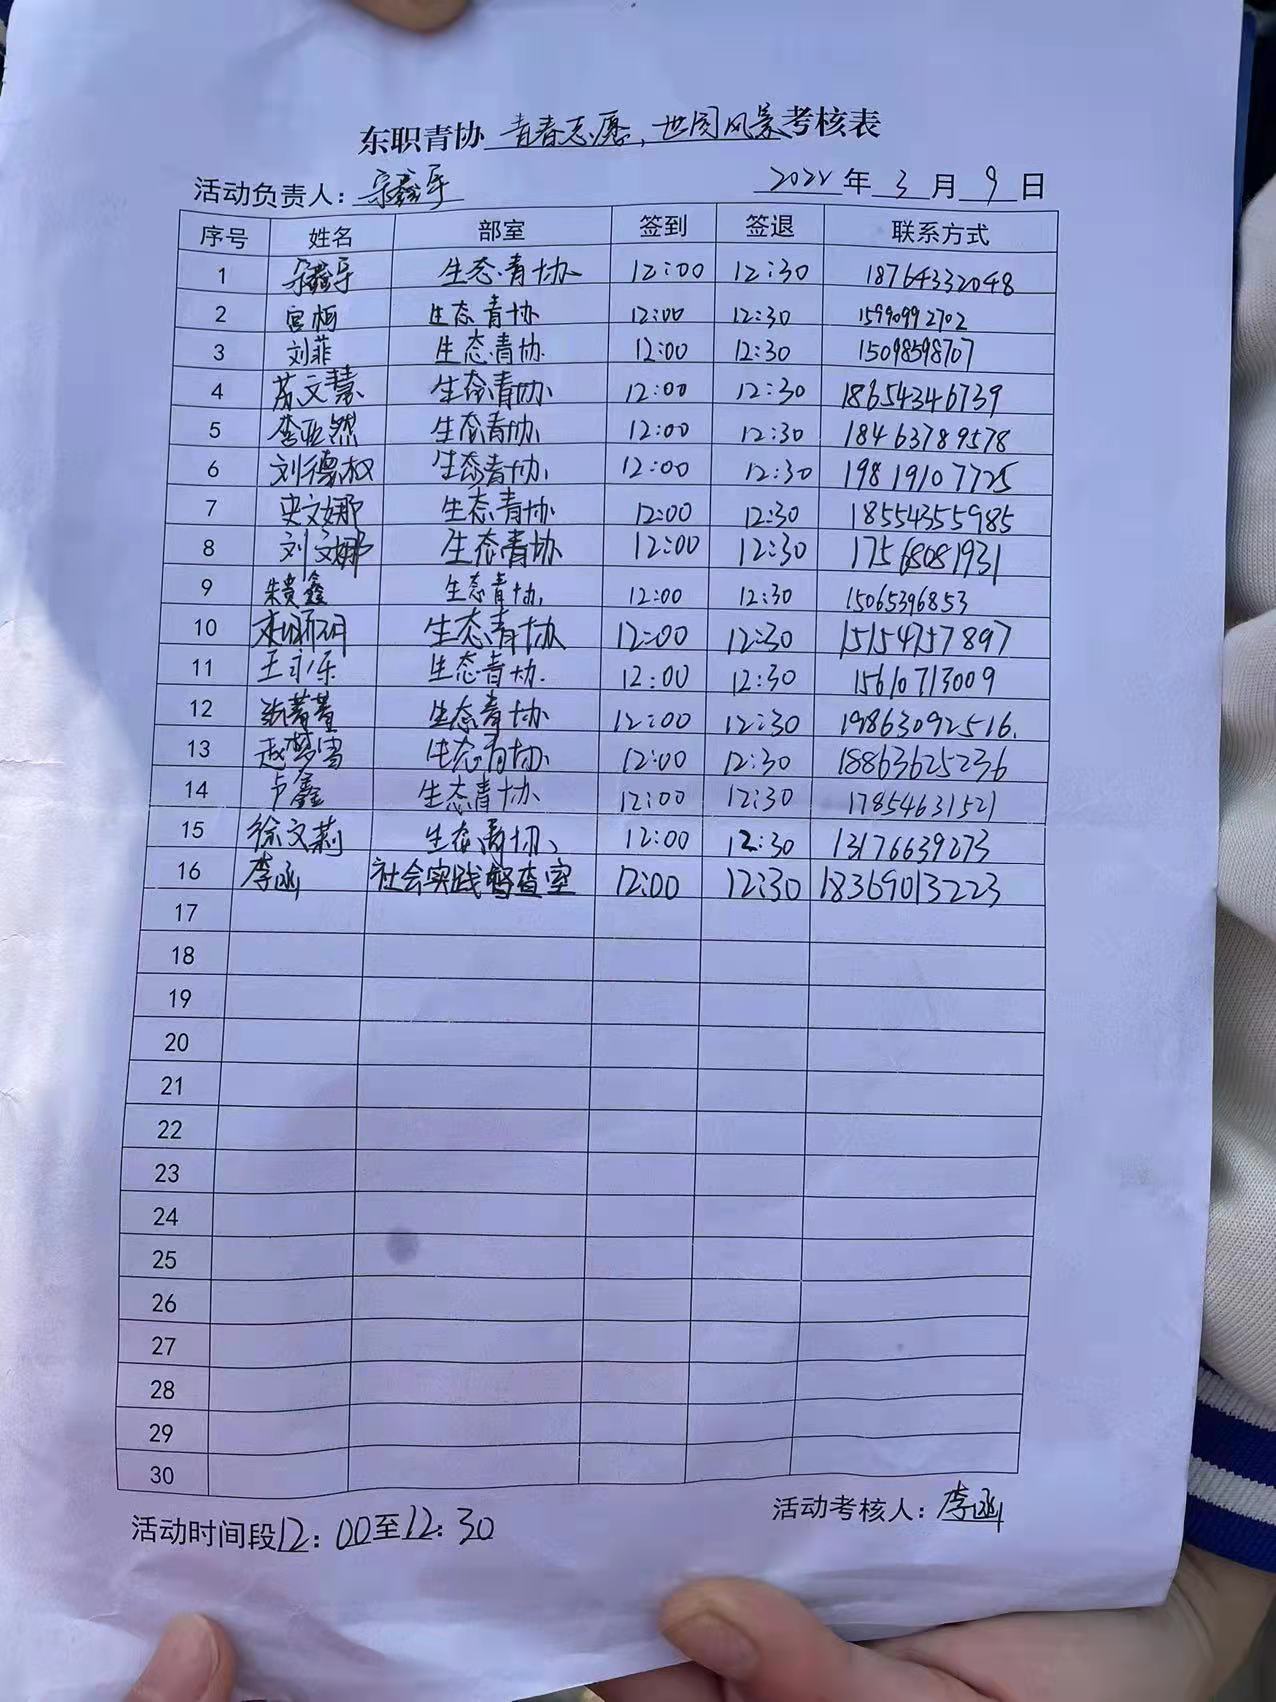 东职青协 青春志愿,世园风景 考核表
活动负责人: 宋鑫宇 2022 年 3 月 9 日
序号 姓名 部室 签到 签退 联系方式
1 宋鑫宇 生态青协 12:00 12:30 18764332048
2 宫柯 生态青协 12:00 12:30 15990992702
3 刘菲 生态青协 12:00 12:30 15098598707
4 苏文慧 生态青协 12:00 12:30 18654346739
5 李亚然 生态青协 12:00 12:30 18463789578
6 刘德权 生态青协 12:00 12:30 19819107725
7 史文娜 生态青协 12:00 12:30 18554355985
8 刘文娜 生态青协 12:00 12:30 17568081931
9 朱贵鑫 生态青协 12:00 12:30 15065396853
10 生态青协 12:00 12:30 15154757897
11 王永乐 生态青协 12:00 12:30 15610713009
12 生态青协 12:00 12:30 19863092516.
13 赵梦雪 生态青协 12:00 12:30 18863625236
14 卢鑫 生态青协 12:00 12:30 17854631521
15 徐文莉 生态青协 12:00 12:30 13176639273
16 李函 社会实践督查室 12:00 12:30 18369013223
17
18
19
20
21
22
23
24
25
26
27
28
29
30
活动时间段12:00至12:30 活动考核人: 李函